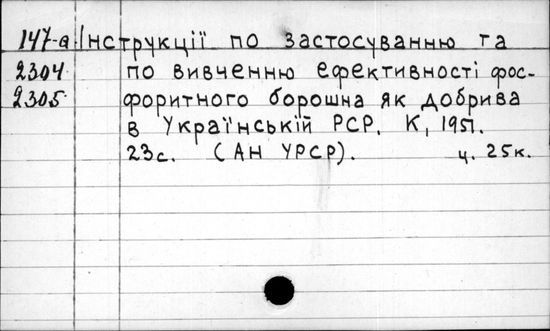 147-а Інструкції по застосуванню та
2304 по вивченню ефективності фос-
2305 форитного борошна як добрива
в Українській РСР. К, 1951.
23с. (АН УРСР). ц. 25к.